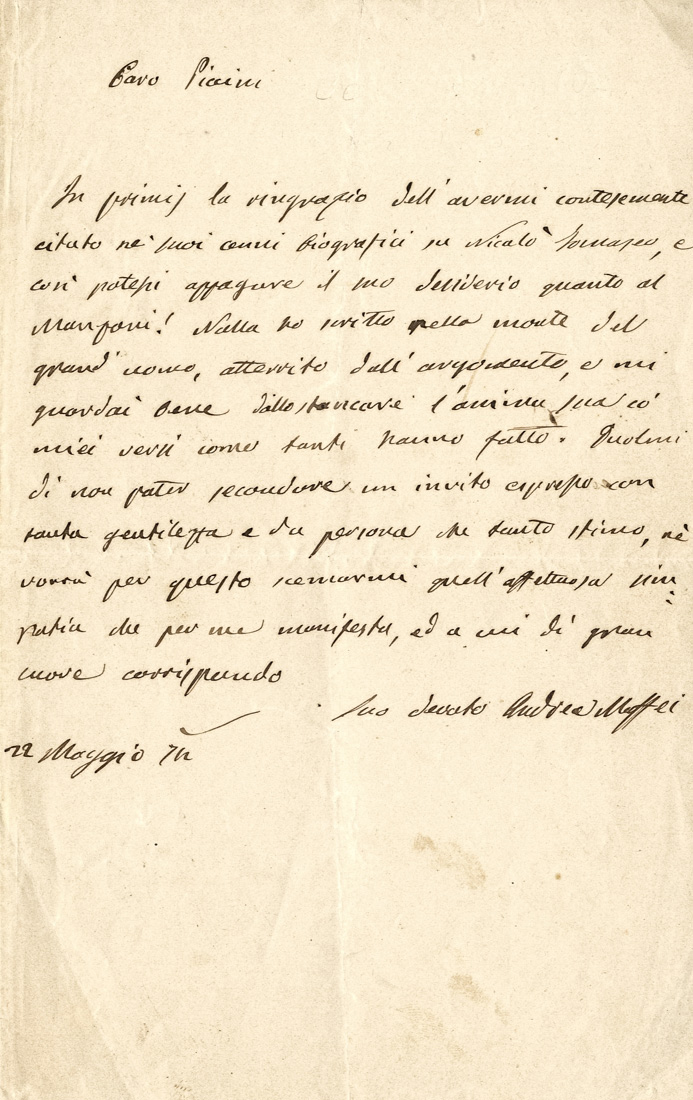 Caro Picini
In primis la ringrazio dell'avermi cortesemente
citato ne' suoi cenni biografici su Nicolò Tomaseo, e
così potessi appagare il suo desiderio quanto al
Manzoni! Nulla ho scritto nella morte del
grand'uomo, atterrito dall'argomento, e mi
guardai bene dallo stancare l'anima sua co'
miei versi come tanti hanno fatto. Duolmi
di non poter secondare un invito espresso con
tanta gentilezza e da persona che tanto stimo, nè
vorrà per questo scemarmi quell'affettuosa sim
patia che per me manifesta, ed a cui di gran
cuore corrispondo
Suo devoto Andrea Maffei
22 Maggio 74